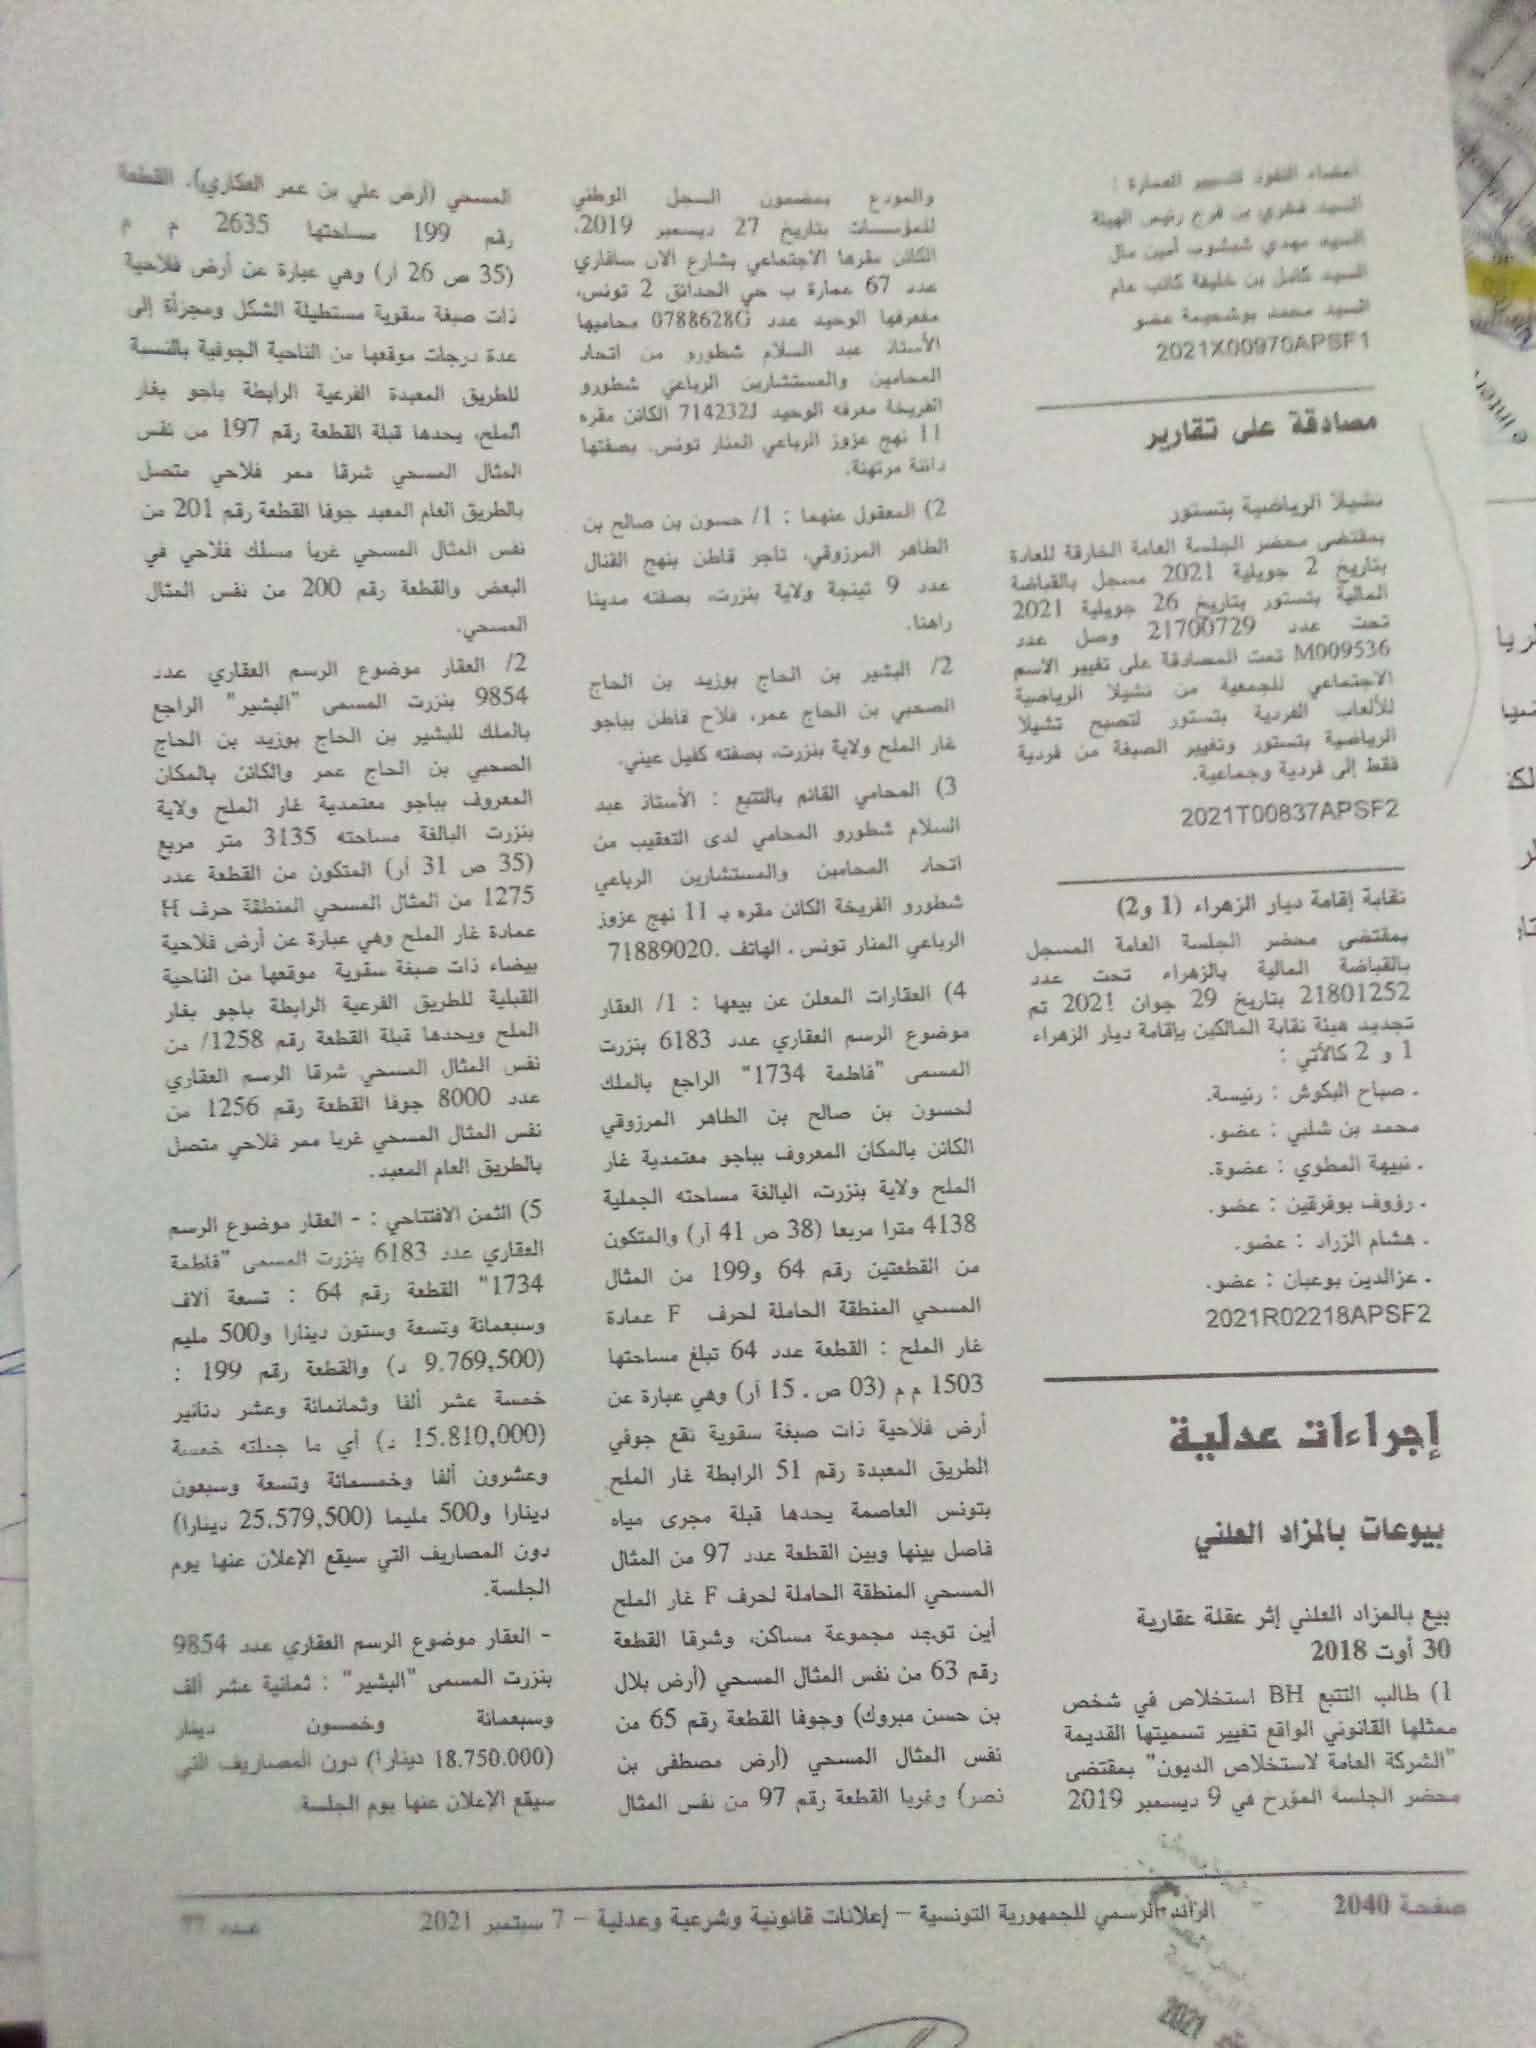 أعضاء النقود لتسيير العمارة :
السيد فخري بن فرج رئيس الهيئة
السيد مهدي شبشوب أمين مال
السيد كامل بن خليفة كاتب عام
السيد محمد بوشحيمة عضو
2021X00970APSF1
مصادقة على تقارير
تشيلا الرياضية بتستور
بمقتضى محضر الجلسة العامة الخارقة للعادة
بتاريخ 2 جويلية 2021 مسجل بالقباضة
المالية بتستور بتاريخ 26 جويلية 2021
تحت عدد 21700729 وصل عدد
M009536 تمت المصادقة على تغيير الاسم
الاجتماعي للجمعية من تشيلا الرياضية
للألعاب الفردية بتستور لتصبح تشيلا
الرياضية بتستور وتغيير الصبغة من فردية
فقط إلى فردية وجماعية.
2021T00837APSF2
نقابة إقامة ديار الزهراء (1 و2)
بمقتضى محضر الجلسة العامة المسجل
بالقباضة المالية بالزهراء تحت عدد
21801252 بتاريخ 29 جوان 2021 تم
تجديد هيئة نقابة المالكين بإقامة ديار الزهراء
1 و 2 كالآتي :
. صباح البكوش : رئيسة.
محمد بن شلبي : عضو.
. نبيهة المطوي : عضوة.
. رؤوف بوفرقين : عضو.
. هشام الزراد : عضو.
. عزالدين بوعبان : عضو.
2021R02218APSF2
إجراءات عدلية
بيوعات بالمزاد العلني
بيع بالمزاد العلني إثر عقلة عقارية
30 أوت 2018
1) طالب التتبع BH استخلاص في شخص
ممثلها القانوني الواقع تغيير تسميتها القديمة
"الشركة العامة لاستخلاص الديون" بمقتضى
محضر الجلسة المؤرخ في 9 ديسمبر 2019
والمودع بمضمون السجل الوطني
للمؤسسات بتاريخ 27 ديسمبر 2019،
الكائن مقرها الاجتماعي بشارع ألان سافاري
عدد 67 عمارة ب حي الحدائق 2 تونس،
معرفها الوحيد عدد 0788628G محاميها
الأستاذ عبد السلام شطورو من اتحاد
المحامين والمستشارين الرباعي شطورو
الفريخة معرفه الوحيد 714232J الكائن مقره
11 نهج عزوز الرباعي المنار تونس. بصفتها
دائنة مرتهنة.
2) المعقول عنهما : 1/ حسون بن صالح بن
الطاهر المرزوقي، تاجر قاطن بنهج القنال
عدد 9 تينجة ولاية بنزرت، بصفته مدينا
راهنا.
2/ البشير بن الحاج بوزيد بن الحاج
الصحبي بن الحاج عمر، فلاح قاطن بباجو
غار الملح ولاية بنزرت، بصفته كفيل عيني.
3) المحامي القائم بالتتبع : الأستاذ عبد
السلام شطورو المحامي لدى التعقيب من
اتحاد المحامين والمستشارين الرباعي
شطورو الفريخة الكائن مقره بـ 11 نهج عزوز
الرباعي المنار تونس . الهاتف .71889020
4) العقارات المعلن عن بيعها : 1/ العقار
موضوع الرسم العقاري عدد 6183 بنزرت
المسمى "فاطمة 1734" الراجع بالملك
لحسون بن صالح بن الطاهر المرزوقي
الكائن بالمكان المعروف بباجو معتمدية غار
الملح ولاية بنزرت، البالغة مساحته الجملية
4138 مترا مربعا (38 ص 41 آر) والمتكون
من القطعتين رقم 64 و199 من المثال
المسحي المنطقة الحاملة لحرف F عمادة
غار الملح : القطعة عدد 64 تبلغ مساحتها
1503 م م (03 ص . 15 آر) وهي عبارة عن
أرض فلاحية ذات صبغة سقوية تقع جوفي
الطريق المعبدة رقم 51 الرابطة غار الملح
بتونس العاصمة يحدها قبلة مجرى مياه
فاصل بينها وبين القطعة عدد 97 من المثال
المسحي المنطقة الحاملة لحرف F غار الملح
أين توجد مجموعة مساكن، وشرقا القطعة
رقم 63 من نفس المثال المسحي (أرض بلال
بن حسن مبروك) وجوفا القطعة رقم 65 من
نفس المثال المسحي (أرض مصطفى بن
نصر) وغربا القطعة رقم 97 من نفس المثال
المسحي (أرض علي بن عمر العكاري). القطعة
رقم 199 مساحتها 2635 م م
(35 ص 26 آر) وهي عبارة عن أرض فلاحية
ذات صبغة سقوية مستطيلة الشكل ومجزأة إلى
عدة درجات موقعها من الناحية الجوفية بالنسبة
للطريق المعبدة الفرعية الرابطة باجو بغار
الملح، يحدها قبلة القطعة رقم 197 من نفس
المثال المسحي شرقا ممر فلاحي متصل
بالطريق العام المعبد جوفا القطعة رقم 201 من
نفس المثال المسحي غربا مسلك فلاحي في
البعض والقطعة رقم 200 من نفس المثال
المسحي.
2/ العقار موضوع الرسم العقاري عدد
9854 بنزرت المسمى "البشير" الراجع
بالملك للبشير بن الحاج بوزيد بن الحاج
الصحبي بن الحاج عمر والكائن بالمكان
المعروف بباجو معتمدية غار الملح ولاية
بنزرت البالغة مساحته 3135 متر مربع
(35 ص 31 آر) المتكون من القطعة عدد
1275 من المثال المسحي المنطقة حرف H
عمادة غار الملح وهي عبارة عن أرض فلاحية
بيضاء ذات صبغة سقوية موقعها من الناحية
القبلية للطريق الفرعية الرابطة باجو بغار
الملح ويحدها قبلة القطعة رقم 1258/ من
نفس المثال المسحي شرقا الرسم العقاري
عدد 8000 جوفا القطعة رقم 1256 من
نفس المثال المسحي غربا ممر فلاحي متصل
بالطريق العام المعبد.
5) الثمن الافتتاحي : - العقار موضوع الرسم
العقاري عدد 6183 بنزرت المسمى "فاطمة
1734" القطعة رقم 64 : تسعة آلاف
وسبعمائة وتسعة وستون دينارا و500 مليم
(9.769,500 د) والقطعة رقم 199 :
خمسة عشر ألفا وثمانمائة وعشر دنانير
(15.810,000 د) أي ما جملته خمسة
وعشرون ألفا وخمسمائة وتسعة وسبعون
دينارا و500 مليما (25.579,500 دينارا)
دون المصاريف التي سيقع الإعلان عنها يوم
الجلسة.
- العقار موضوع الرسم العقاري عدد 9854
بنزرت المسمى "البشير" : ثمانية عشر ألف
وسبعمائة وخمسون دينار
(18.750.000 دينارا) دون المصاريف التي
سيقع الإعلان عنها يوم الجلسة.
صفحة 2040
الرائد الرسمي للجمهورية التونسية – إعلانات قانونية وشرعية وعدلية – 7 سبتمبر 2021
عدد 77
2021